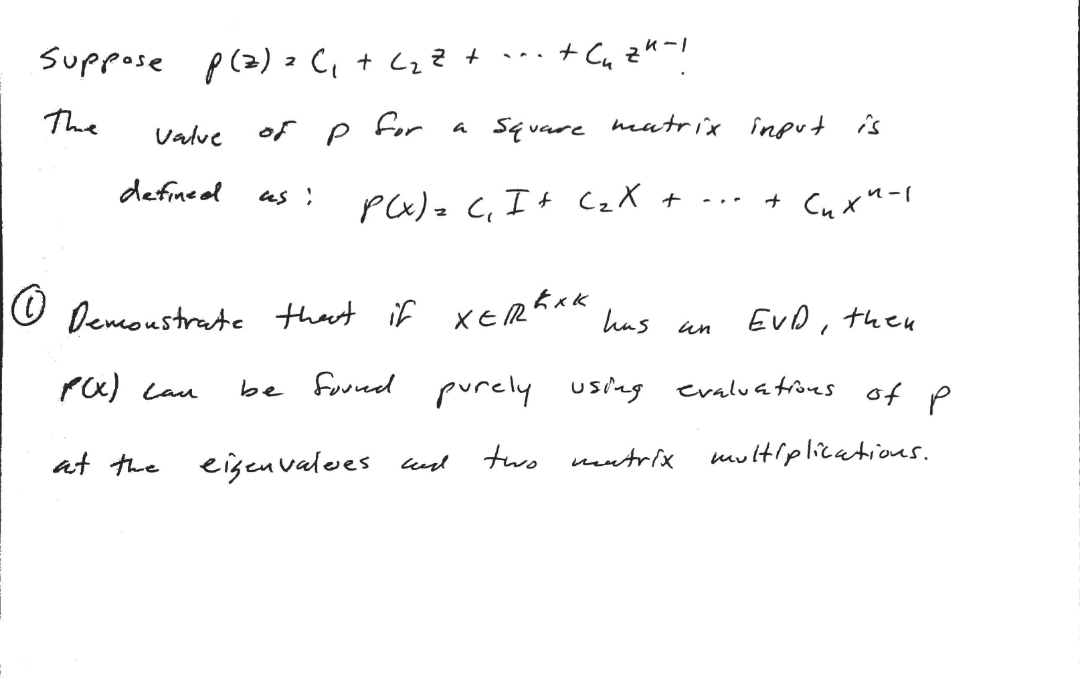 Suppose p(z) = C₁ + C₂ z + ... + Cₙ zⁿ⁻¹.
The value of p for a square matrix input is
defined as: P(X) = C₁ I + C₂ X + ... + Cₙ Xⁿ⁻¹
① Demonstrate that if X ∈ ℝᵏˣᵏ has an EVD, then
P(X) can be found purely using evaluations of p
at the eigenvalues and two matrix multiplications.